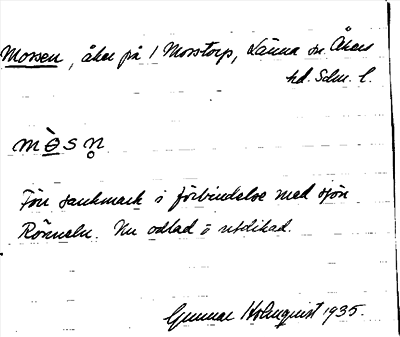 Mossen, åker på 1 Morstorp, Länna sn. Åkers
hd. Sdm. l.
mɵ̀sn̥
Förr sankmark i förbindelse med sjön
Rönneln. Nu odlad o utdikad.
Gunnar Holmquist 1935.